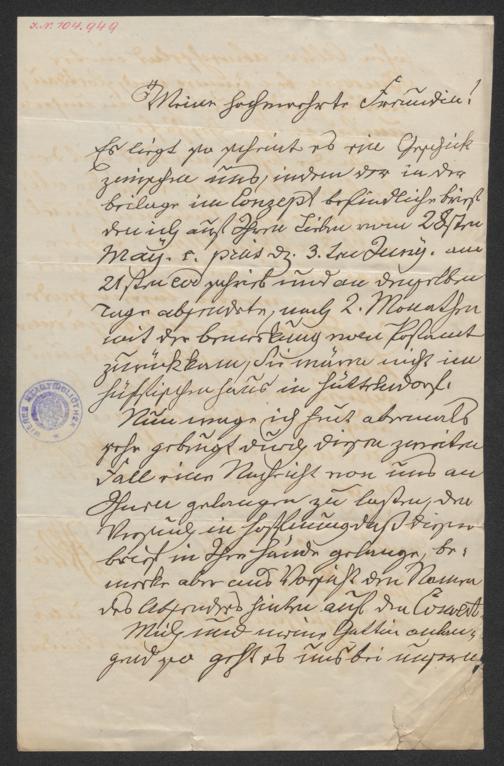 J.N. 104.949
Meine hochverehrte Freundin!
Es liegt so scheint es ein Geschick
zwischen uns, indem der in der
beilage im Conzept befindliche brief
den ich auf Ihren Lieben vom 28sten
May. c. präs dz. 3.ten Juny. am
21sten ej schrieb und an demselben
Tage absendete, nach 2. Monathen
mit der bemerkung vom Postamt
zurückkam, Sie wären nicht im
Haus in Hütteldorf.
Nun wage ich heut abermals
sehr gebeugt durch diesen zweiten
Fall eine Nachricht von uns an
Ihnen gelangen zu lassen, den
Versuch, in Hoffnung daß dieser
brief in Ihre Hände gelange, be-
merke aber aus Vorsicht den Namen
des Absenders hinten auf den Couvert.
Mich und meine Gattin anlan-
gend so geht es uns bei unsern
WIENER STADTBIBLIOTHEK